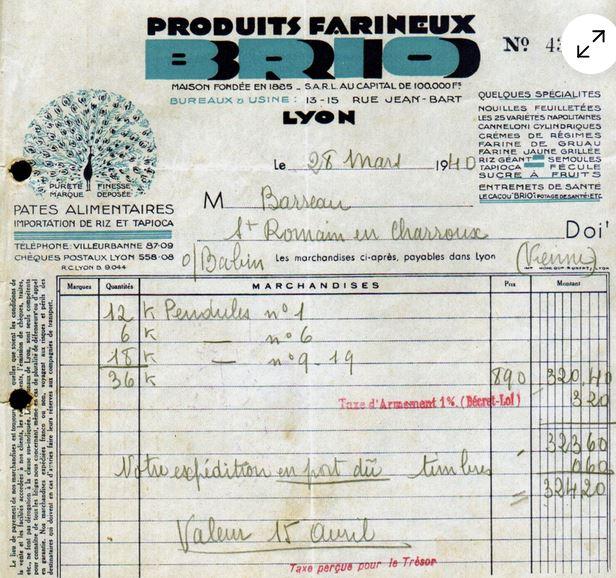 PRODUITS FARINEUX
BRIO
Nº 43
MAISON FONDÉE EN 1885 _ S.A.R.L. AU CAPITAL DE 100.000 Frs
BUREAUX & USINE : 13-15 RUE JEAN-BART
LYON
QUELQUES SPÉCIALITÉS
NOUILLES FEUILLETÉES
LES 25 VARIÉTÉS NAPOLITAINES
CANNELONI CYLINDRIQUES
CRÈMES DE RÉGIMES
FARINE DE GRUAU
FARINE JAUNE GRILLÉE
RIZ GÉANT SEMOULES
TAPIOCA FÉCULE
SUCRE À FRUITS
ENTREMETS DE SANTÉ
LE CACOU "BRIO" POTAGE DE SANTÉ ETC.
PURETÉ FINESSE
MARQUE DÉPOSÉE
PATES ALIMENTAIRES
IMPORTATION DE RIZ ET TAPIOCA
TÉLÉPHONE: VILLEURBANNE 87-09
CHÈQUES POSTAUX LYON 558-08
R.C. LYON B. 9.044
Le 28 Mars 1940
M Barreau
St Romain en Charroux Doi'
o/Babin Les marchandises ci-après, payables dans Lyon (Vienne)
Marques Quantités MARCHANDISES Prix Montant
12 K Pendules nº 1
6 K — nº 6
18 K — nº 9-19
36 K 890 320,40
Taxe d'Armement 1% (Décret-Loi) 3 20
323 60
Notre expédition en port dû timbres 0 60
= 324 20
Valeur 15 avril
Taxe perçue pour le Trésor